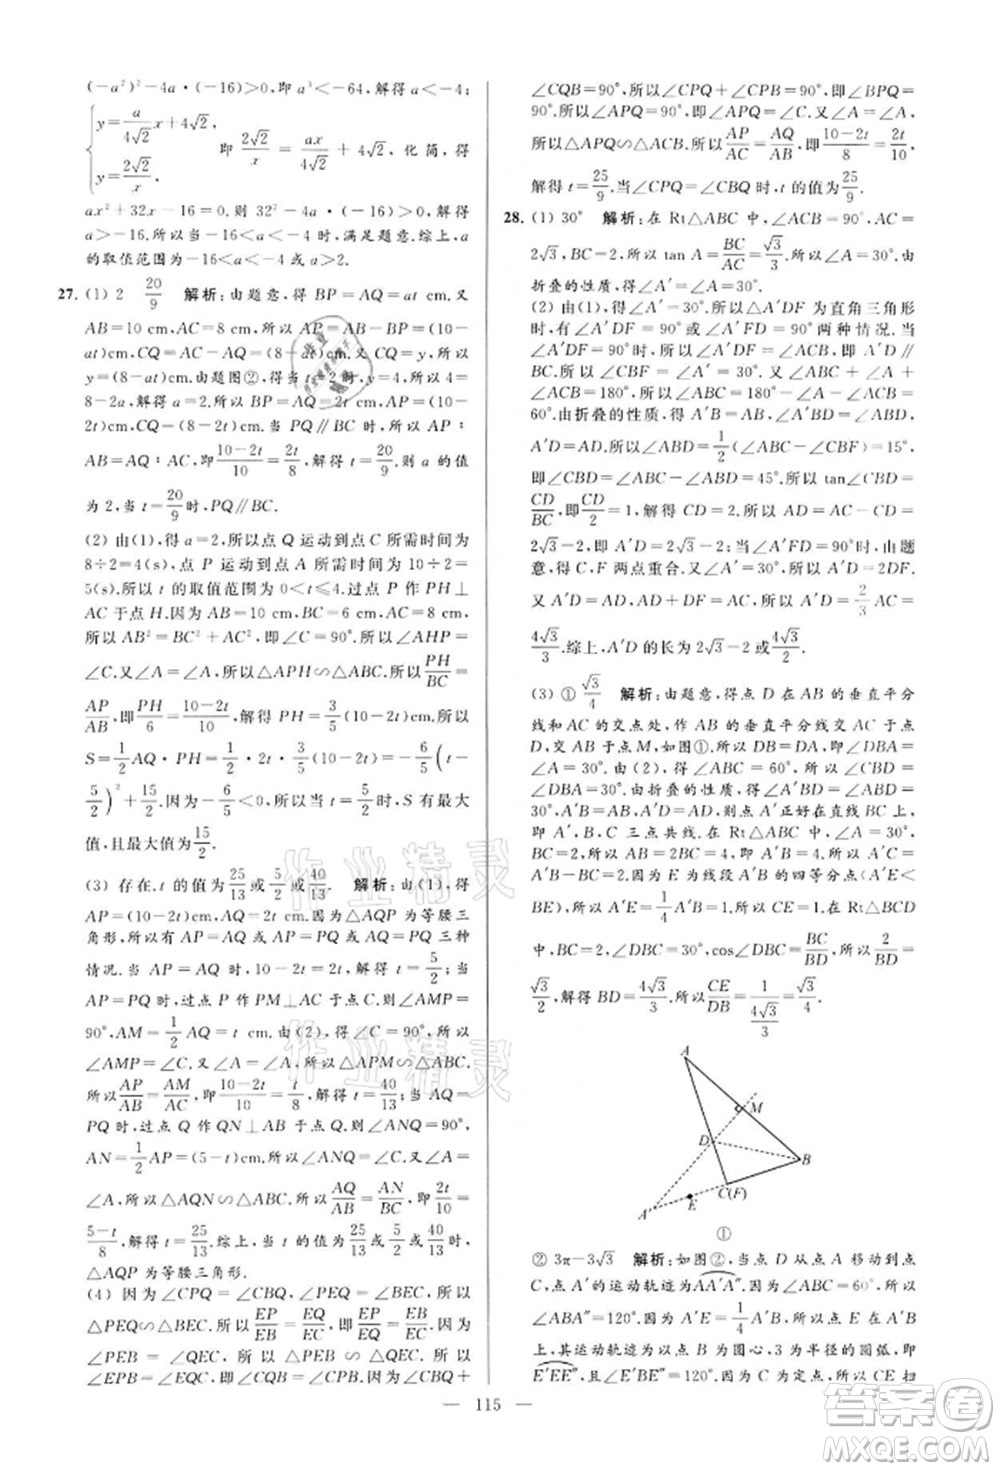 (-a²)²-4a·(-16)>0,即 a³<-64,解得 a<-4;
{y=a/(4√2)x+4√2, y=2√2/x. 即 2√2/x = ax/(4√2) + 4√2,化简,得
ax²+32x-16=0.则 32²-4a·(-16)>0,解得
a>-16.所以当-16<a<-4时,满足题意.综上,a
的取值范围为-16<a<-4.
27. (1) 2 20/9 解析:由题意,得 BP=AQ=at cm.又
AB=10 cm,AC=8 cm,所以 AP=AB-BP=(10-
at)cm,CQ=AC-AQ=(8-at)cm.又 CQ=y,所以
y=(8-at)cm.由题图②,得当 t=2时,y=4.所以 4=
8-2a,解得 a=2.所以 BP=AQ=2t cm.所以 AP=
(10-2t)cm,CQ=(8-2t)cm.当 PQ∥BC 时,AP∶
AB=AQ∶AC,即(10-2t)/10=2t/8,解得 t=20/9.则 a 的值
为 2,当 t=20/9时,PQ∥BC.
(2) 由(1),得 a=2,所以点 Q 运动到点 C 所需时间为
8÷2=4(s),点 P 运动到点 A 所需时间为 10÷2=
5(s).所以 t 的取值范围为 0<t≤4.过点 P 作 PH⊥
AC 于点 H.因为 AB=10 cm,BC=6 cm,AC=8 cm,
所以 AB²=BC²+AC²,即∠C=90°.所以∠AHP=
∠C.又∠A=∠A,所以△APH∽△ABC.所以PH/BC=
AP/AB,即PH/6=(10-2t)/10,解得 PH=3/5(10-2t)cm.所以
S=1/2AQ·PH=1/2×2t×3/5(10-2t)=-6/5(t-
5/2)²+15/2.因为-6/5<0,所以当 t=5/2时,S 有最大
值,且最大值为15/2.
(3) 存在.t 的值为25/13或5/2或40/13. 解析:由(1),得
AQ=2t cm,AP=(10-2t)cm.因为△AQP 为等腰三
角形,所以有 AP=AQ 或 AP=PQ 或 AQ=PQ 三种
情况.当 AP=AQ 时,10-2t=2t,解得 t=5/2;当
AP=PQ 时,过点 P 作 PM⊥AC,所以∠AMP=
90°,AM=1/2AQ=t cm.由(2),得∠C=90°,所以
∠AMP=∠C.又∠A=∠A,所以△APM∽△ABC.
所以AP/AB=AM/AC,即(10-2t)/10=t/8,解得 t=40/13;当 AQ=
PQ 时,过点 Q 作 QN⊥AB,所以∠ANQ=90°,
AN=1/2AP=(5-t)cm.所以∠ANQ=∠C.又∠A=
∠A,所以△AQN∽△ABC.所以AQ/AB=AN/AC,即2t/10=
(5-t)/8,解得 t=25/13.综上,当 t 的值为25/13或5/2或40/13时,
△AQP 为等腰三角形.
(4) 因为∠CPQ=∠CBQ,∠PEQ=∠BEC,所以
△PEQ∽△BEC.所以EP/EB=EQ/EC,即EP/EQ=EB/EC.又
∠PEB=∠QEC,所以△PEB∽△QEC.所以
∠EPB=∠EQC.所以∠EPB+∠CPQ=∠CBQ+
∠CQB=90°.所以∠CPQ+∠CPB=90°,即∠BPQ=
90°.所以∠APQ=90°,即∠APQ=∠C.又∠A=∠A,
所以△APQ∽△ACB.所以AP/AC=AQ/AB,即(10-2t)/8=2t/10,
解得 t=25/9.当∠CPQ=∠CBQ时,t 的值为25/9.
28. (1) 30° 解析:在 Rt△ABC 中,∠ACB=90°,AC=
2√3,BC=2,所以 tan A=BC/AC=√3/3.所以∠A=30°.由
折叠的性质,得∠A'=∠A=30°.
(2) 由(1),得∠A'=30°.所以△A'DF为直角三角形
时,有∠A'DF=90°或∠A'FD=90°两种情况.当
∠A'DF=90°时,∠A'DF=∠ACB,所以A'D∥
BC.所以∠CBF=∠A'=30°.又∠A+∠ABC+
∠ACB=180°,所以∠ABC=180°-∠A-∠ACB=
60°.由折叠的性质,得 A'B=AB,∠ABD=∠A'BD,
A'D=AD.所以∠ABD=1/2(∠ABC-∠CBF)=15°,
即∠CBD=∠ABC-∠ABD=45°.所以 tan∠CBD=
CD/BC,即CD/2=1,解得 CD=2.所以 AD=AC-CD=
2√3-2,即 A'D=2√3-2;当∠A'FD=90°时,由题
意,得 C,F 两点重合.又∠A'=30°,所以 A'D=2DF.
又 A'D=AD,AD+DF=AC,所以 A'D=2/3AC=
4√3/3.综上,A'D的长为 2√3-2 或4√3/3.
(3) ① √3/4 解析:由题意,得点 D 在 AB 的垂直平分
线和AC的交点处,作 AB 的垂直平分线交 AC 于点
D,交 AB 于点 M,如图①.所以 DB=DA,即∠DBA=
∠A.由(2),得∠ABC=60°,∠A=30°,所以
∠DBA=30°=∠A.由折叠的性质,得∠A'BD=
∠DBA=30°,A'D=AD,则点 A'正好在直线 BC 上,
即 A',B,C 三点共线.在 Rt△ABC 中,AB=
2BC=4,所以 A'B=4.因为 E 为A'B 的四等分点(A'E<
BE),所以 A'E=1/4A'B=1.所以 CE=1.在 Rt△BCD
中,BC=2,∠DBC=30°,cos∠DBC=BC/BD,所以2/BD=
√3/2,解得 BD=4√3/3.所以CE/DB=1/(4√3/3)=√3/4.
A
M
D
B
C(F)
E
A'
①
② 3π-3√3 解析:如图②,当点 D 从点 A 移动到点
C时,点A'的运动轨迹为AA'A″.因为∠ABC=60°,所以
∠ABA″=120°.因为 A'E=1/4A'B,所以 A'E=1,BE=
3.其运动轨迹为以点 B 为圆心,3 为半径的圆弧,即
E'EE″,所以∠E'BE″=120°.因为 C 为定点,所以 CE 扫
— 115 —
作业精灵
作业精灵
答案圈
MXQE.COM